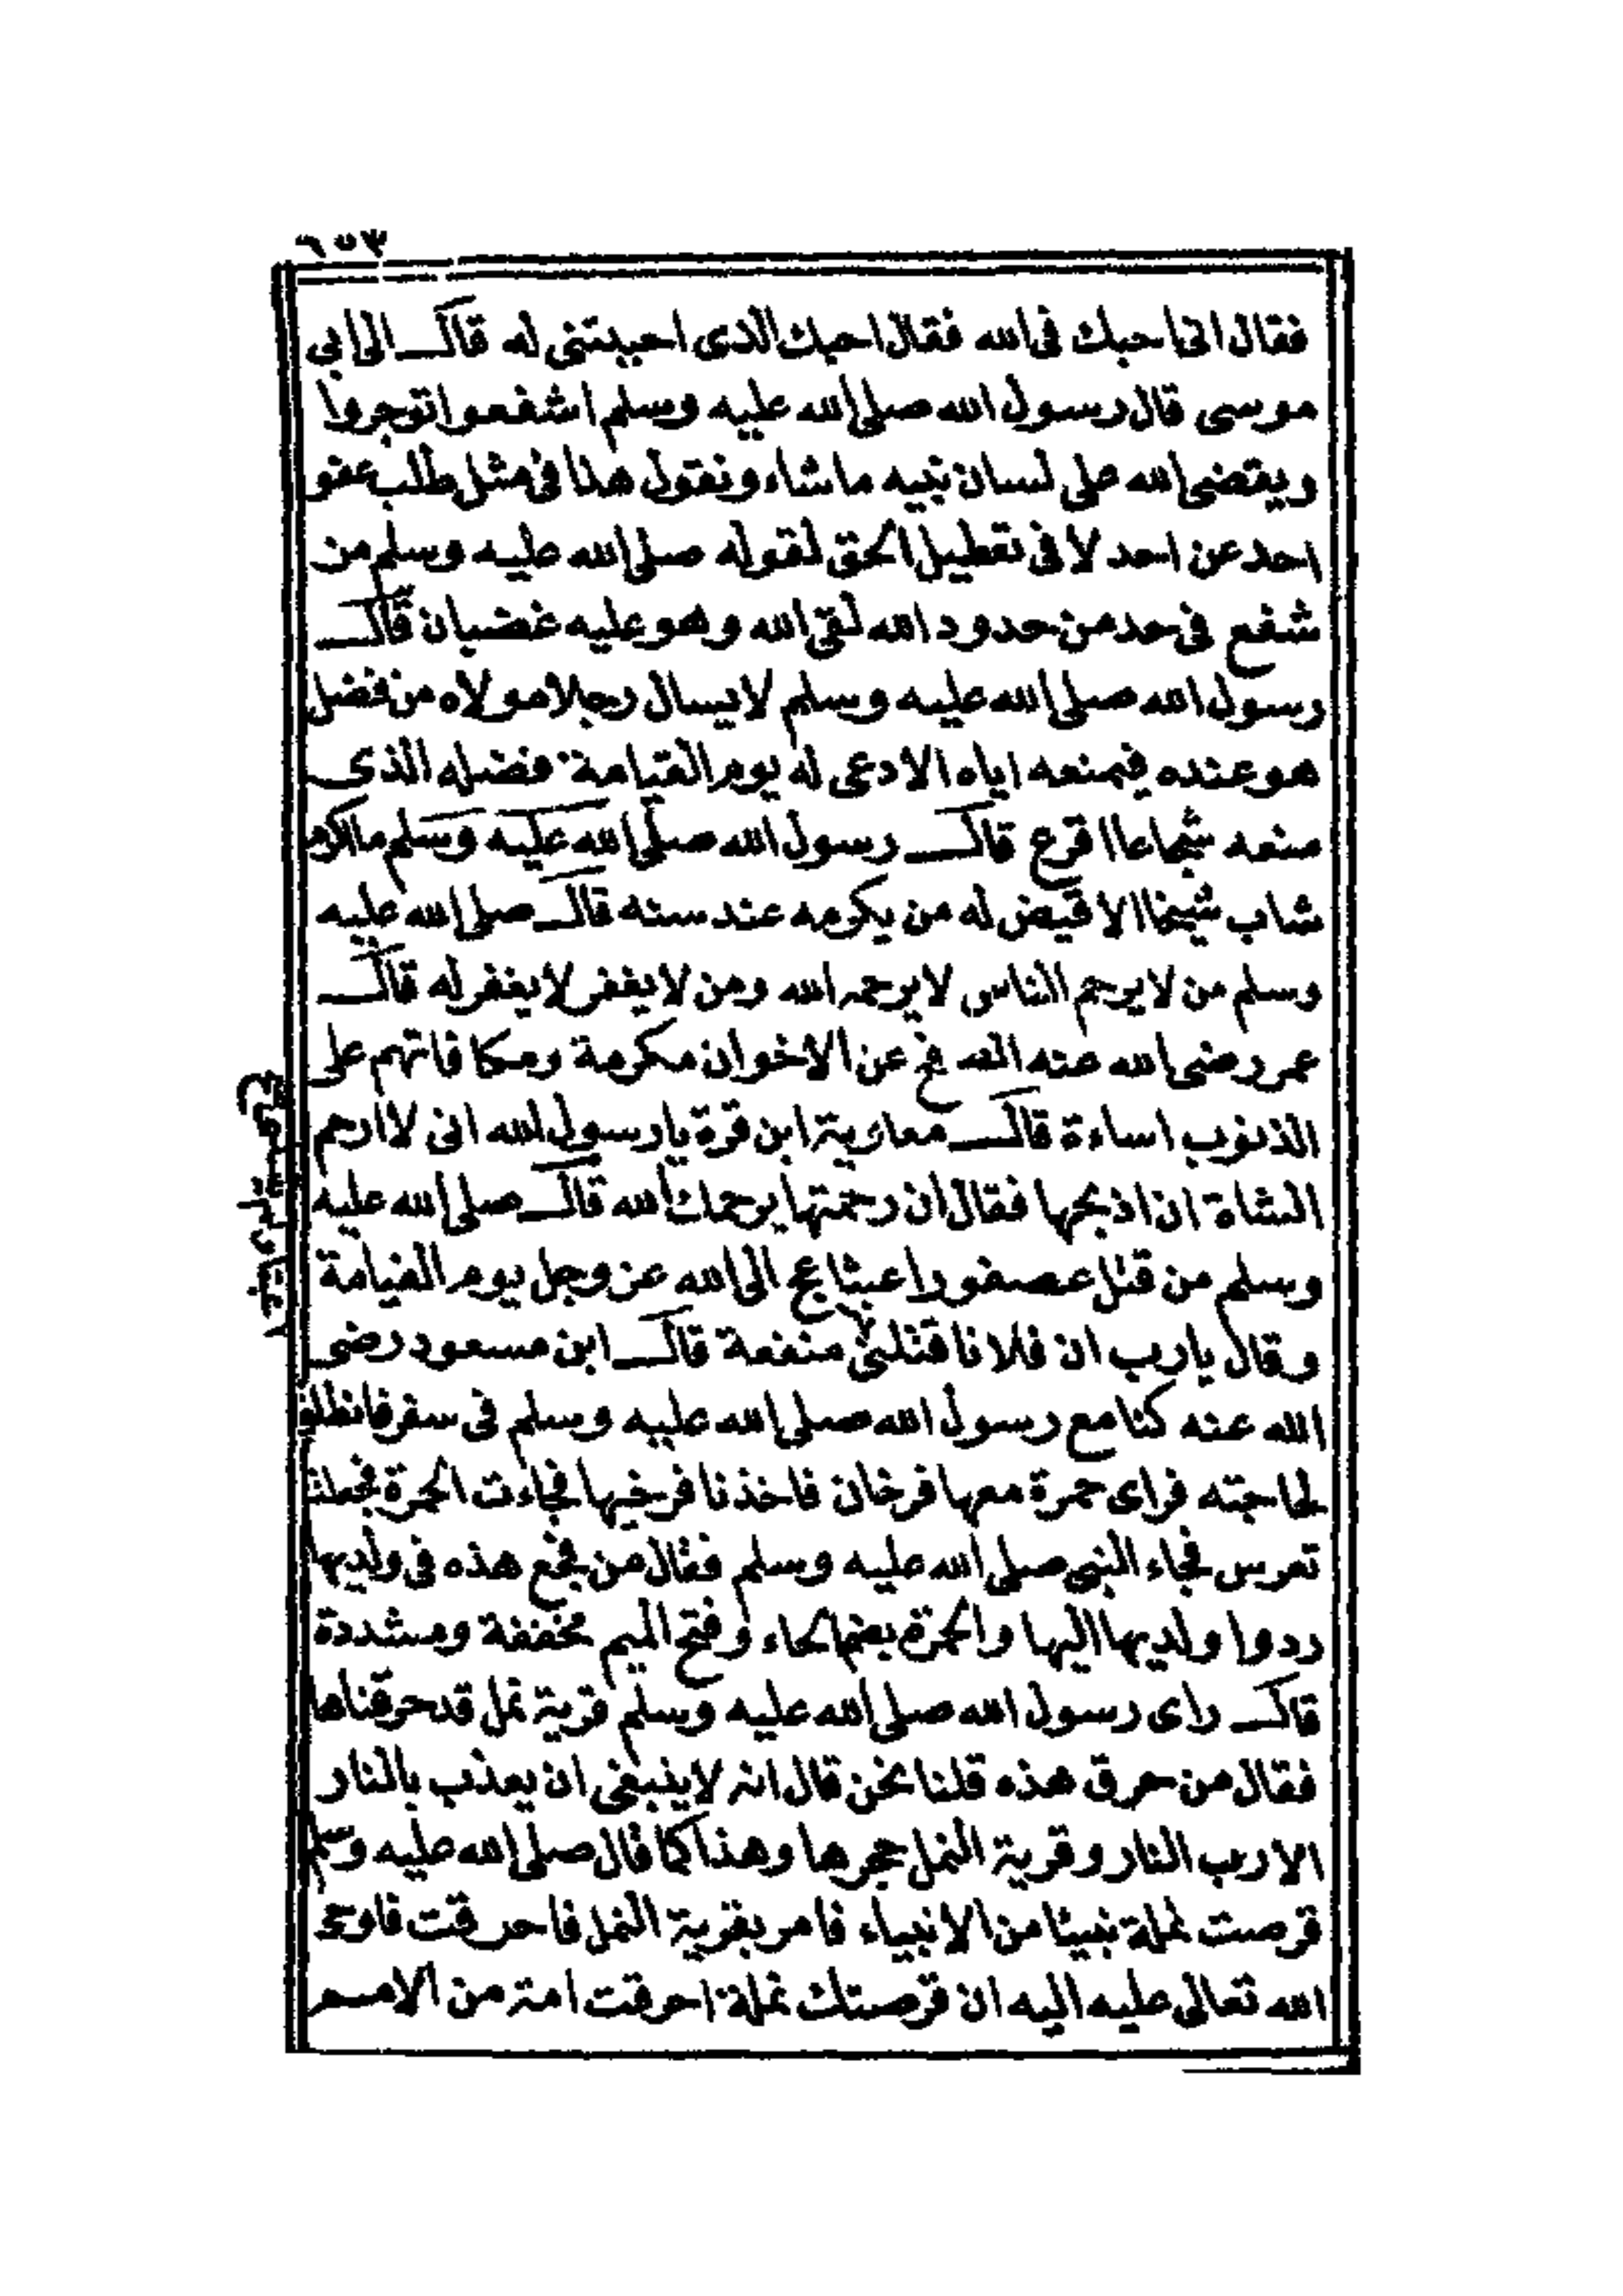 ٦٥٣
فقال انى احبك فى الله فقال احبك الذى احببتنى له قال الى ابي
موسى قال رسول الله صلى الله عليه وسلم اشفعوا توجروا
ويقضى الله على لسان نبيه ماشاء ونقول هذا فى مثل طلب عفو
احد عن احد لا فى تعطيل الحق لقوله صلى الله عليه وسلم من
شفع فى حد من حدود الله لقى الله وهو عليه غضبان قال
رسول الله صلى الله عليه وسلم لا يسال رجلا مولاه من فضل
هو عنده فيمنعه اياه الا دعى له يوم القيامة فضله الذى
منعه شجاعا اقرع قال رسول الله صلى الله عليه وسلم ما اكرم
شاب شيخا الا قيض له من يكرمه عند سنه قال صلى الله عليه
وسلم من لا يرحم الناس لا يرحمه الله ومن لا يغفر لا يغفر له قال
عمر رضى الله عنه عن الاخوان مكرمة ومكافاتهم على
الذنوب اساءة قال معاوية ابن قرة يا رسول الله انى لا ارحم
الشاة ان اذبحها فقال ان رحمتها يرحمك الله قال صلى الله عليه
وسلم من قتل عصفورا عبثا عج الى الله عز وجل يوم القيامة
وقال يارب ان فلانا قتلنى لا منفعة قال ابن مسعود رضى
الله عنه كنا مع رسول الله صلى الله عليه وسلم فى سفر فانطلق
لحاجته فراى حمرة معها فرخان فاخذنا فرخيها فجاءت الحمرة فجعلت
تعرس فجاء النبى صلى الله عليه وسلم فقال من فجع هذه فى ولديها
ردوا ولديها اليها والحمرة بضم الحاء وفتح الميم مخففة ومشددة
قال راى رسول الله صلى الله عليه وسلم قرية نمل قد حرقناها
فقال من حرق هذه قلنا نحن قال انه لا ينبغى ان يعذب بالنار
الا رب النار وقرية النمل حجرها وهذا كما قال صلى الله عليه وسلم
قرصت نملة نبيئا من الانبياء فامر بقرية النمل فاحرقت فاوحى
الله تعالى عليه اليه ان قرصتك نملة احرقت امة من الامم